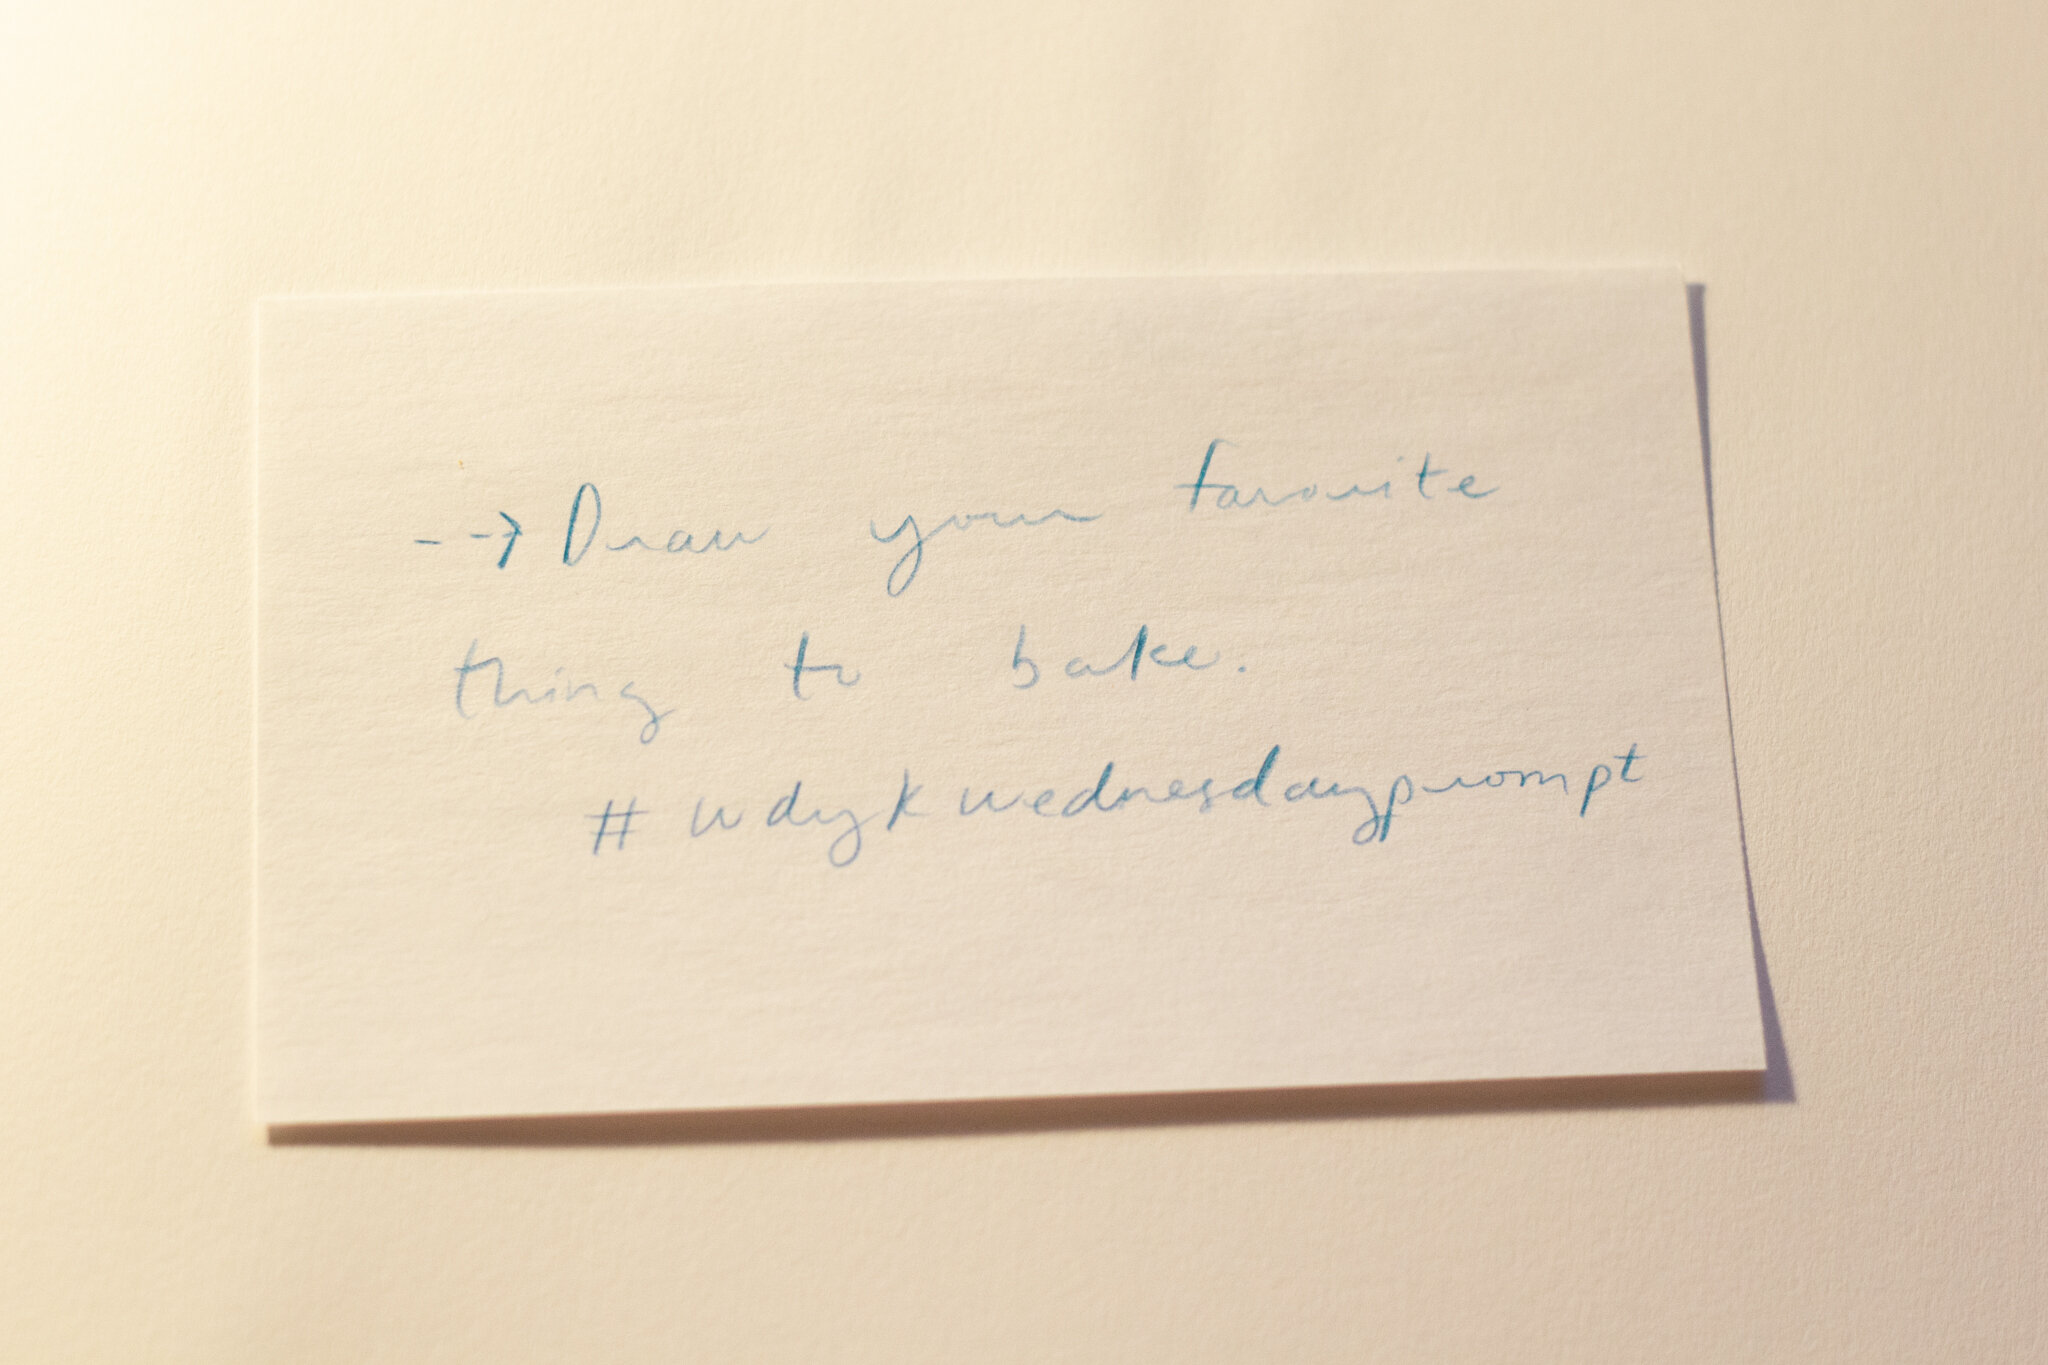 --> Draw your favorite
thing to bake.
# wdyk wednesdayprompt